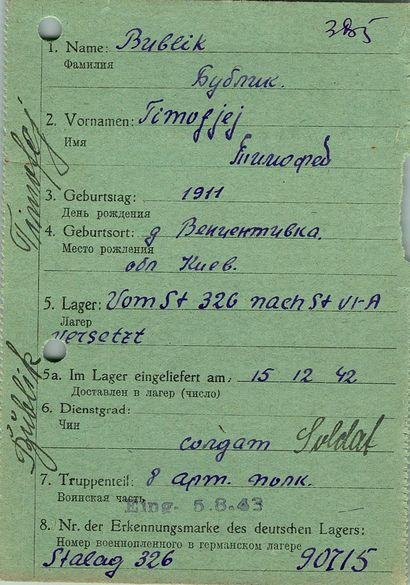 385
1. Name: Bublik
Фамилия
Бублик.
2. Vornamen: Timofjej
Имя
Тимофей
3. Geburtstag: 1911
День рождения
4. Geburtsort: д Венцентивка.
Место рождения
обл Киев.
5. Lager: Vom St 326 nach St VI-A
Лагер
versetzt
5a. Im Lager eingeliefert am: 15 12 42
Доставлен в лагер (число)
6. Dienstgrad:
Чин
солдат Soldat
7. Truppenteil: 8 арт. полк.
Воинская часть
Eing. 5.8.43
8. Nr. der Erkennungsmarke des deutschen Lagers:
Номер военнопленного в германском лагере
Stalag 326 90715
Timofej
Bublik